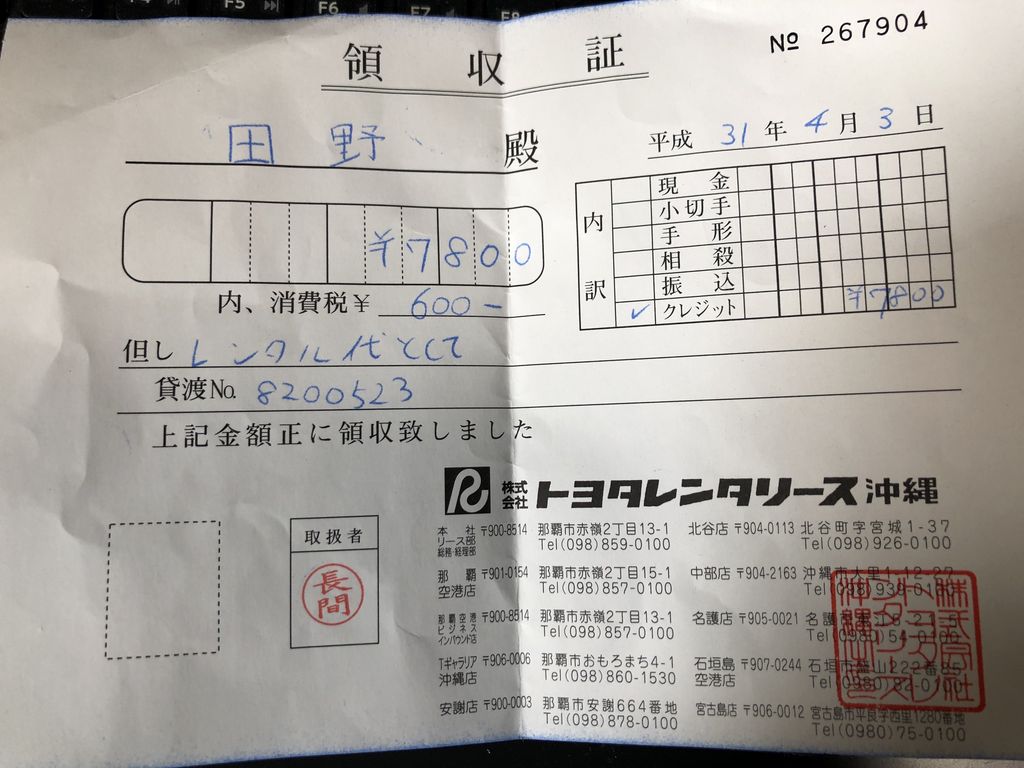 F5 F6 F7 F8
№ 267904
領収証
田野 殿
平成 31年 4月 3日
¥7800
内、消費税¥ 600-
内訳
現金
小切手
手形
相殺
振込
✓ クレジット ¥7800
但し レンタル代として
貸渡No. 8200523
上記金額正に領収致しました
株式会社 トヨタレンタリース沖縄
取扱者
長間
本社 リース部 総務・経理部 〒900-8514 那覇市赤嶺2丁目13-1 Tel(098)859-0100
北谷店 〒904-0113 北谷町字宮城1-37 Tel(098)926-0100
那覇空港店 〒901-0154 那覇市赤嶺2丁目15-1 Tel(098)857-0100
中部店 〒904-2163 沖縄市大里1-12-27 Tel(098)939-0100
那覇空港ビジネスインバウンド店 〒900-8514 那覇市赤嶺2丁目13-1 Tel(098)857-0100
名護店 〒905-0021 Tel(0980)54-0100
Tギャラリア沖縄店 〒906-0006 那覇市おもろまち4-1 Tel(098)860-1530
石垣島空港店 〒907-0244 石垣市盛山222番85 Tel(0980)82-0100
安謝店 〒900-0003 那覇市安謝664番地 Tel(098)878-0100
宮古島店 〒906-0012 宮古島市平良字西里1280番地 Tel(0980)75-0100